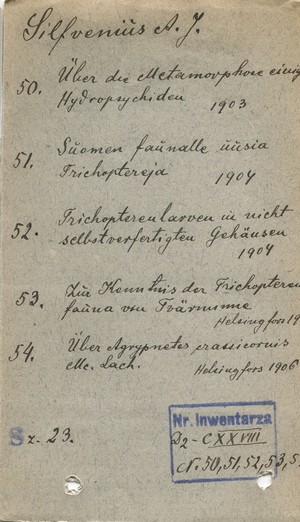 Silfvenius A. J.
50. Über die Metamorphose einig
Hydropsychiden 1903
51. Suomen faunalle uusia
Trichoptereja 1904
52. Trichopterenlarven in nicht
selbstverfertigten Gehäusen
1904
53. Zur Kenntnis der Trichopteren
fauna von Tvärminne
Helsingfors 19
54. Über Agrypnetes crassicornis
Mc. Lach. Helsingfors 1906
Sz. 23.
Nr. Inwentarza
D2-CXXVIII
N. 50, 51, 52, 53, 5